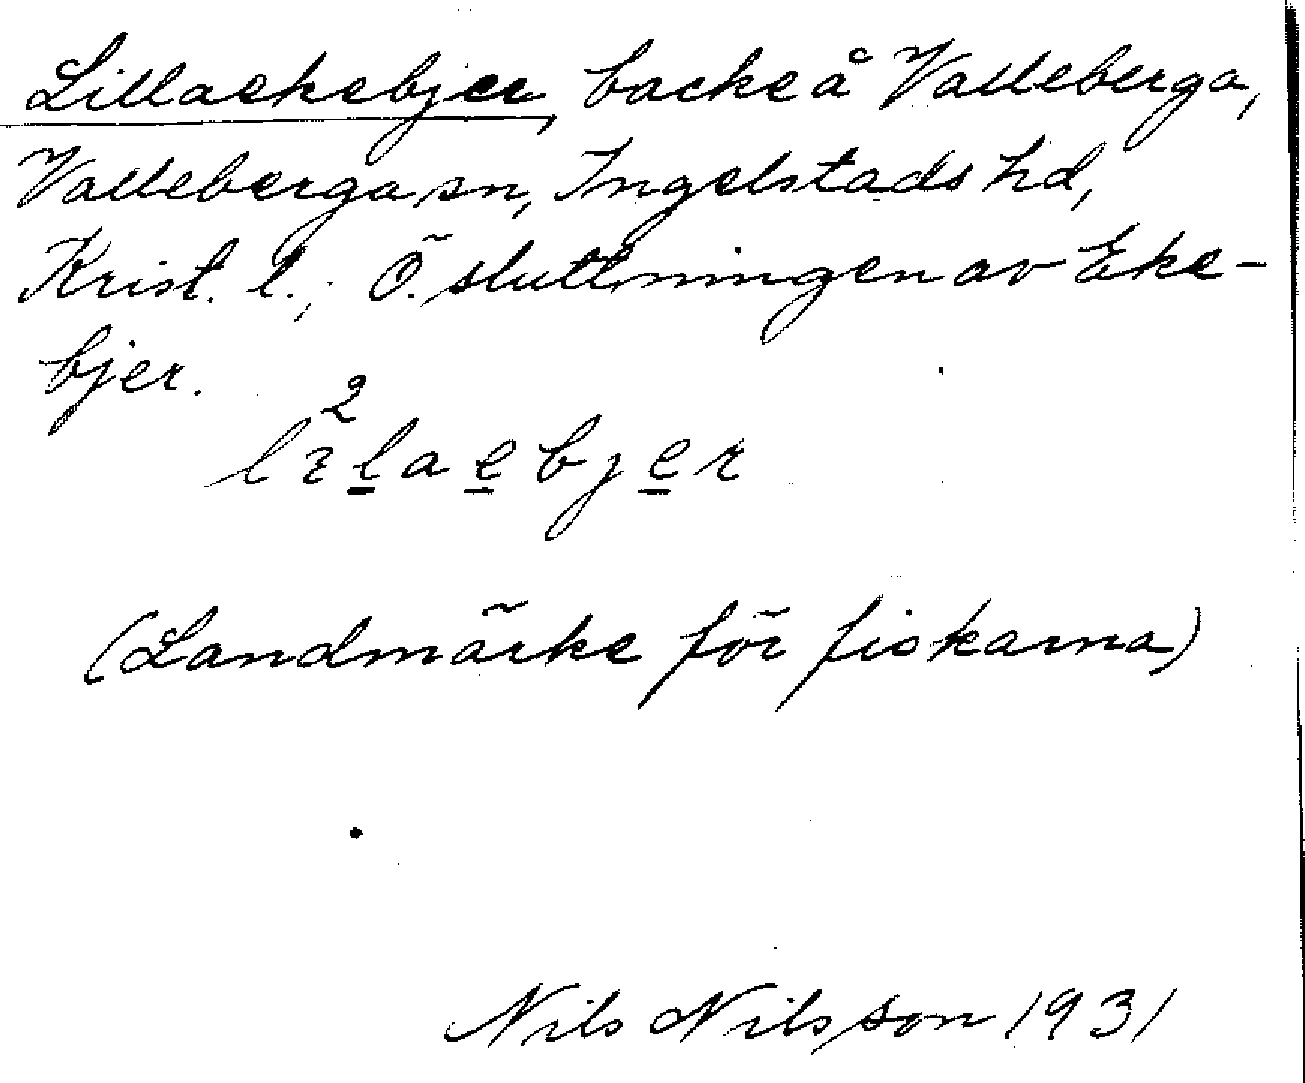 Lillaekebjer, backe å Valleberga,
Valleberga sn, Ingelstads hd,
Krist. l.; Ö. sluttningen av Eke-
bjer.
2
lɪl̲ae̲bje̲r
(Landmärke för fiskarna)
Nils Nilsson 1931